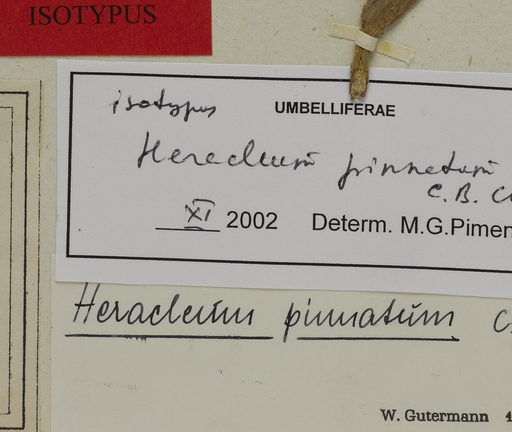 ISOTYPUS
isotypus
UMBELLIFERAE
Heracleum pinnatum
C.B. C
XI 2002 Determ. M.G.Pimen
Heracleum pinnatum C
W. Gutermann 1